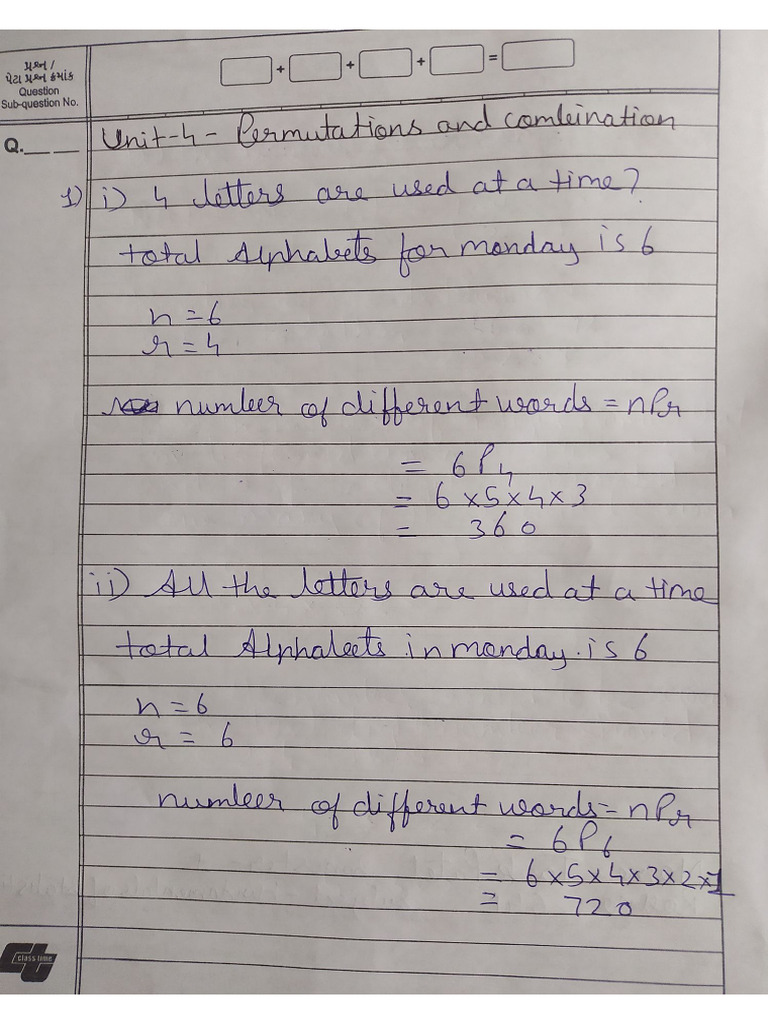 પ્રશ્ન /
પેટા પ્રશ્ન ક્રમાંક
Question
Sub-question No.
+ + + =
Q.
Unit-4 - Permutations and combination
1) i) 4 letters are used at a time?
total Alphabets for monday is 6
n = 6
r = 4
number of different words = nPr
= 6P4
= 6 x 5 x 4 x 3
= 360
ii) All the letters are used at a time
total Alphabets in monday. is 6
n = 6
r = 6
number of different words = nPr
= 6P6
= 6 x 5 x 4 x 3 x 2 x 1
= 720
class time